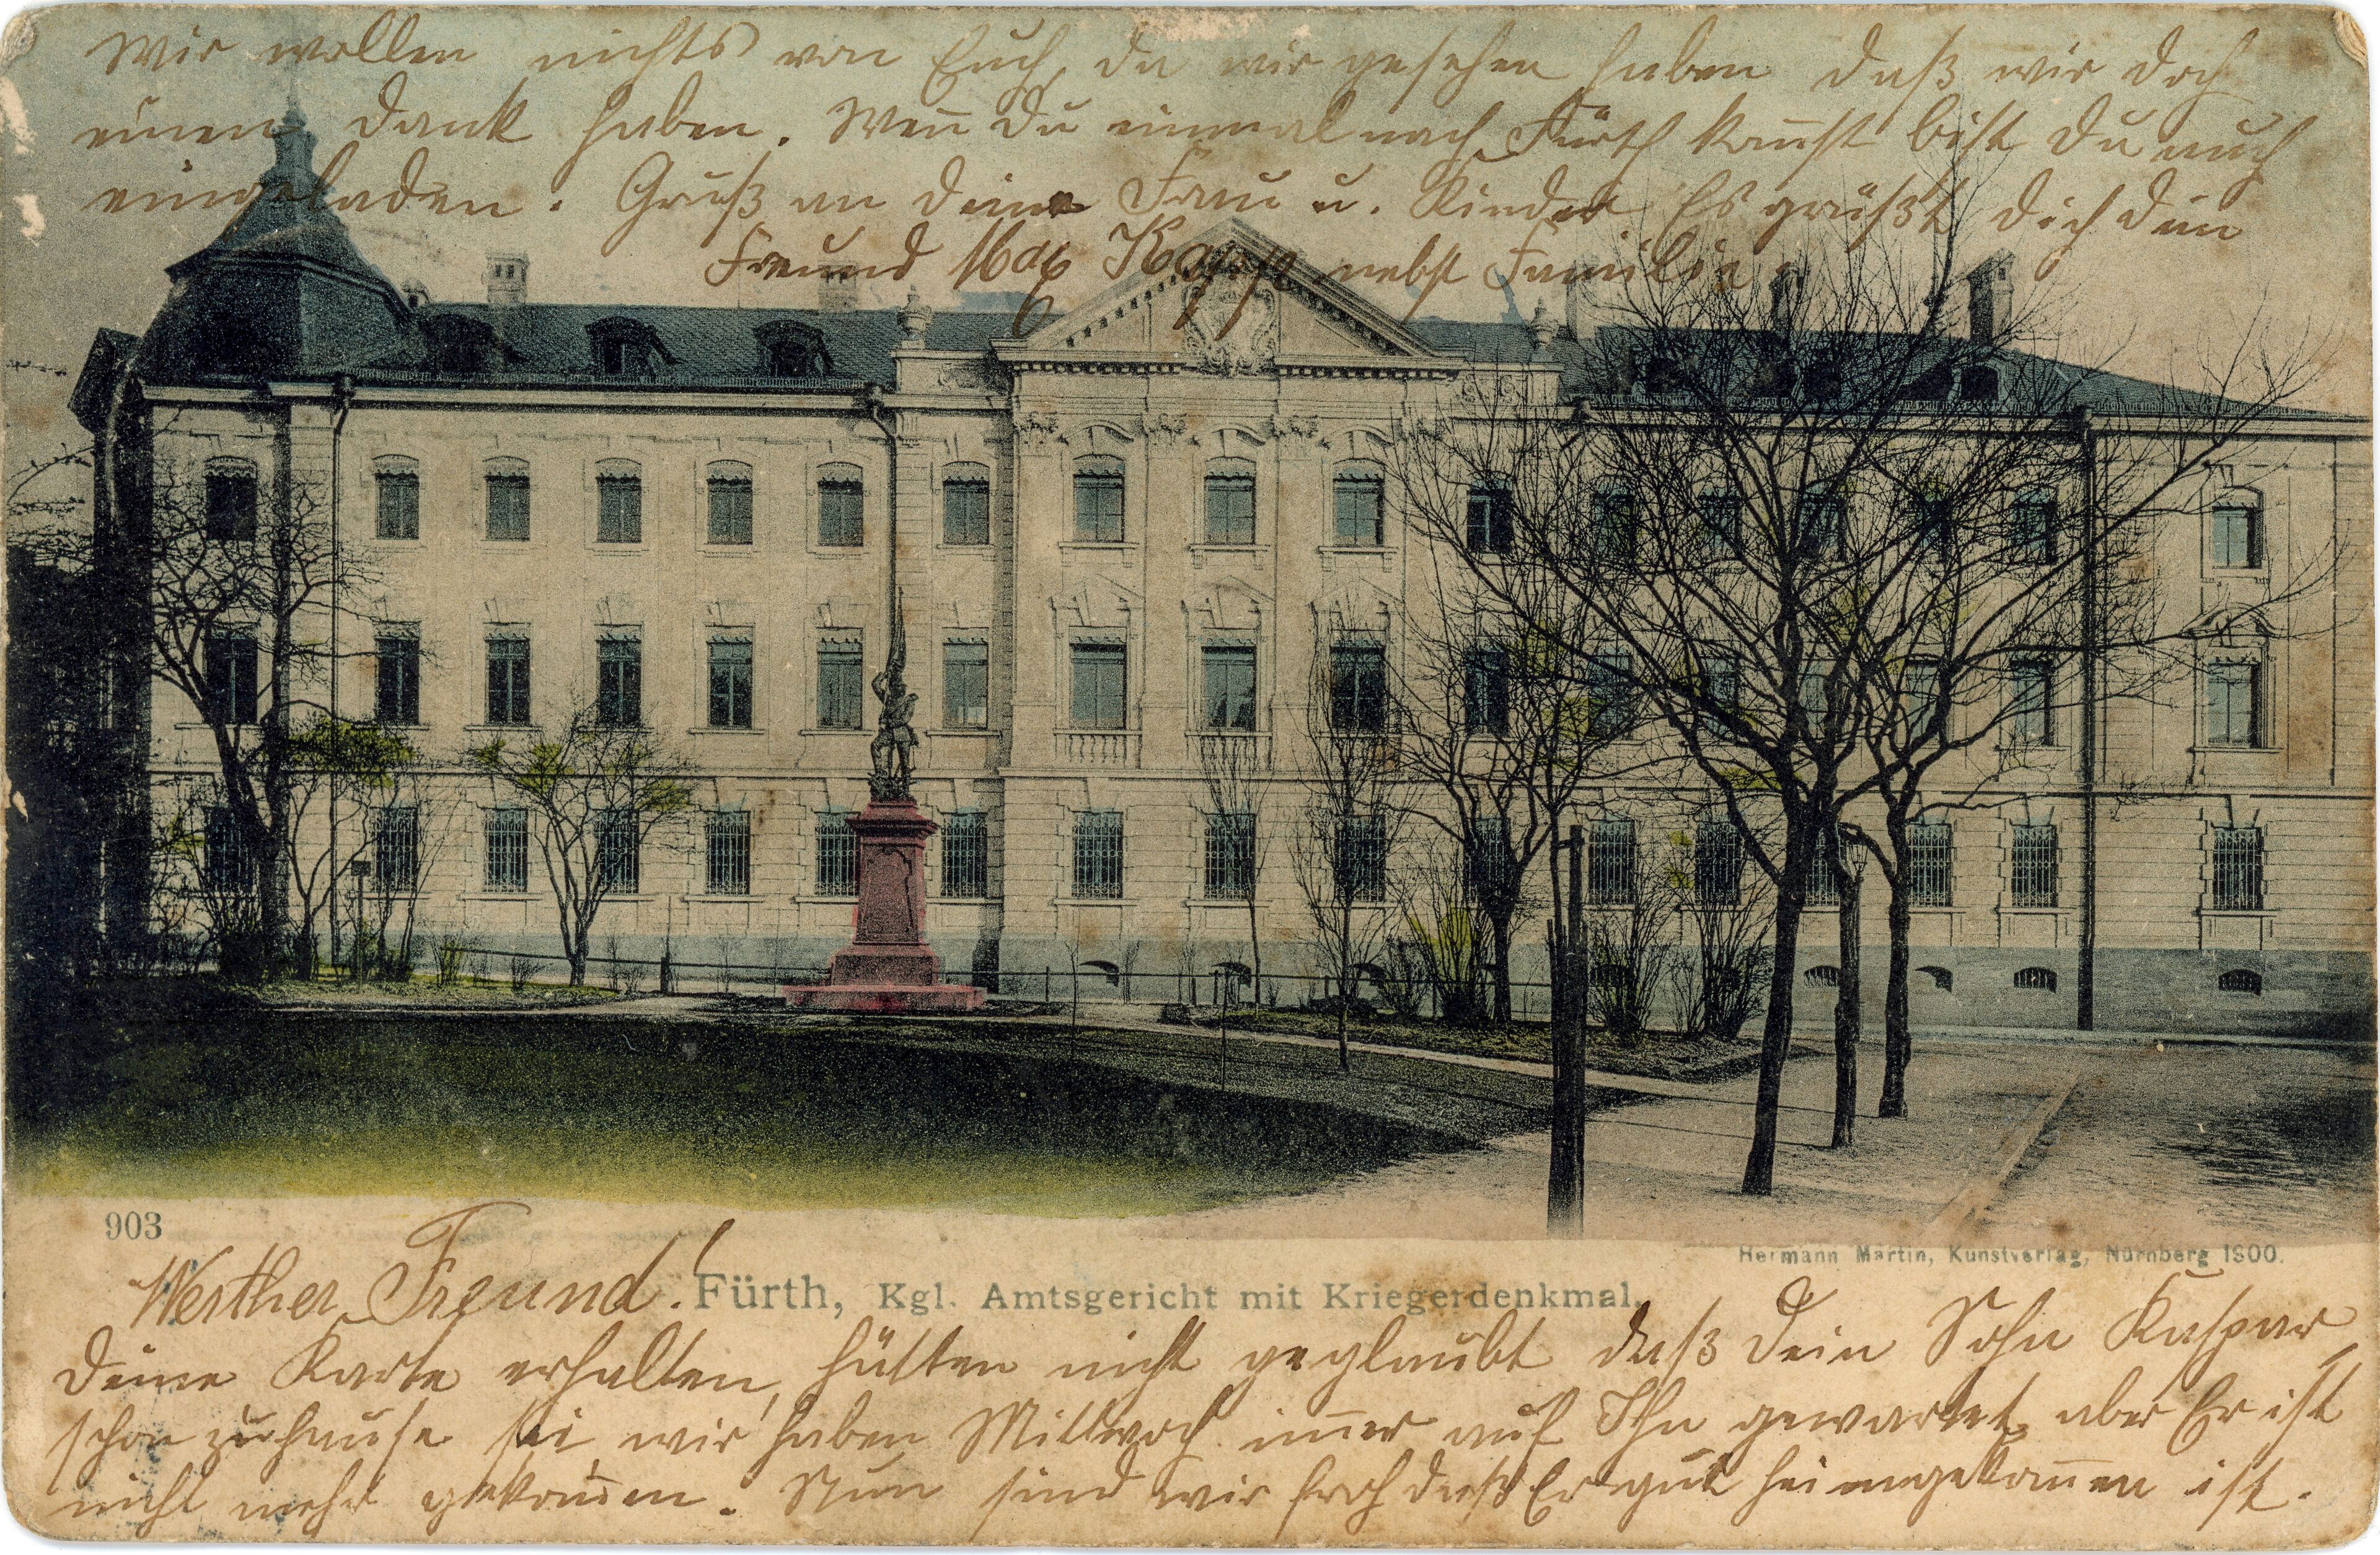 Wir wollen nichts von Euch, da wir gesehen haben daß wir doch
einen Dank haben. Wen̄ Du einmal nach Fürth kom̄st bist Du auch
eingeladen. Gruß an deine Frau u. Kinder Es grüßt dich dein
Freund Max nebst Familie.
903
Hermann Martin, Kunstverlag, Nürnberg 1900.
Werther Freund!
Fürth, Kgl. Amtsgericht mit Kriegerdenkmal.
Deine Karte erhalten, hätten nicht geglaubt daß Dein Sohn Kaspar,
schon zuhause sei wir haben Mittwoch im̄er auf Ihn gewartet, aber Er ist
nicht mehr gekom̄en. Nun sind wir froh daß Er gut heimgekom̄en ist.